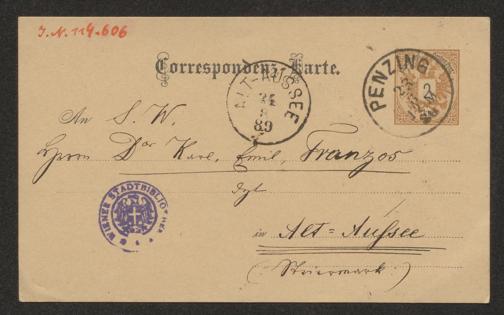 J. N. 114.606
Correspondenz-Karte.
PENZING
23
2
ALT-AUSSEE
24
89
An S. W.
Herrn Dor Karl, Emil, Franzos
WIENER STADTBIBLIOTHEK
in Alt-Aussee
(Steiermark.)